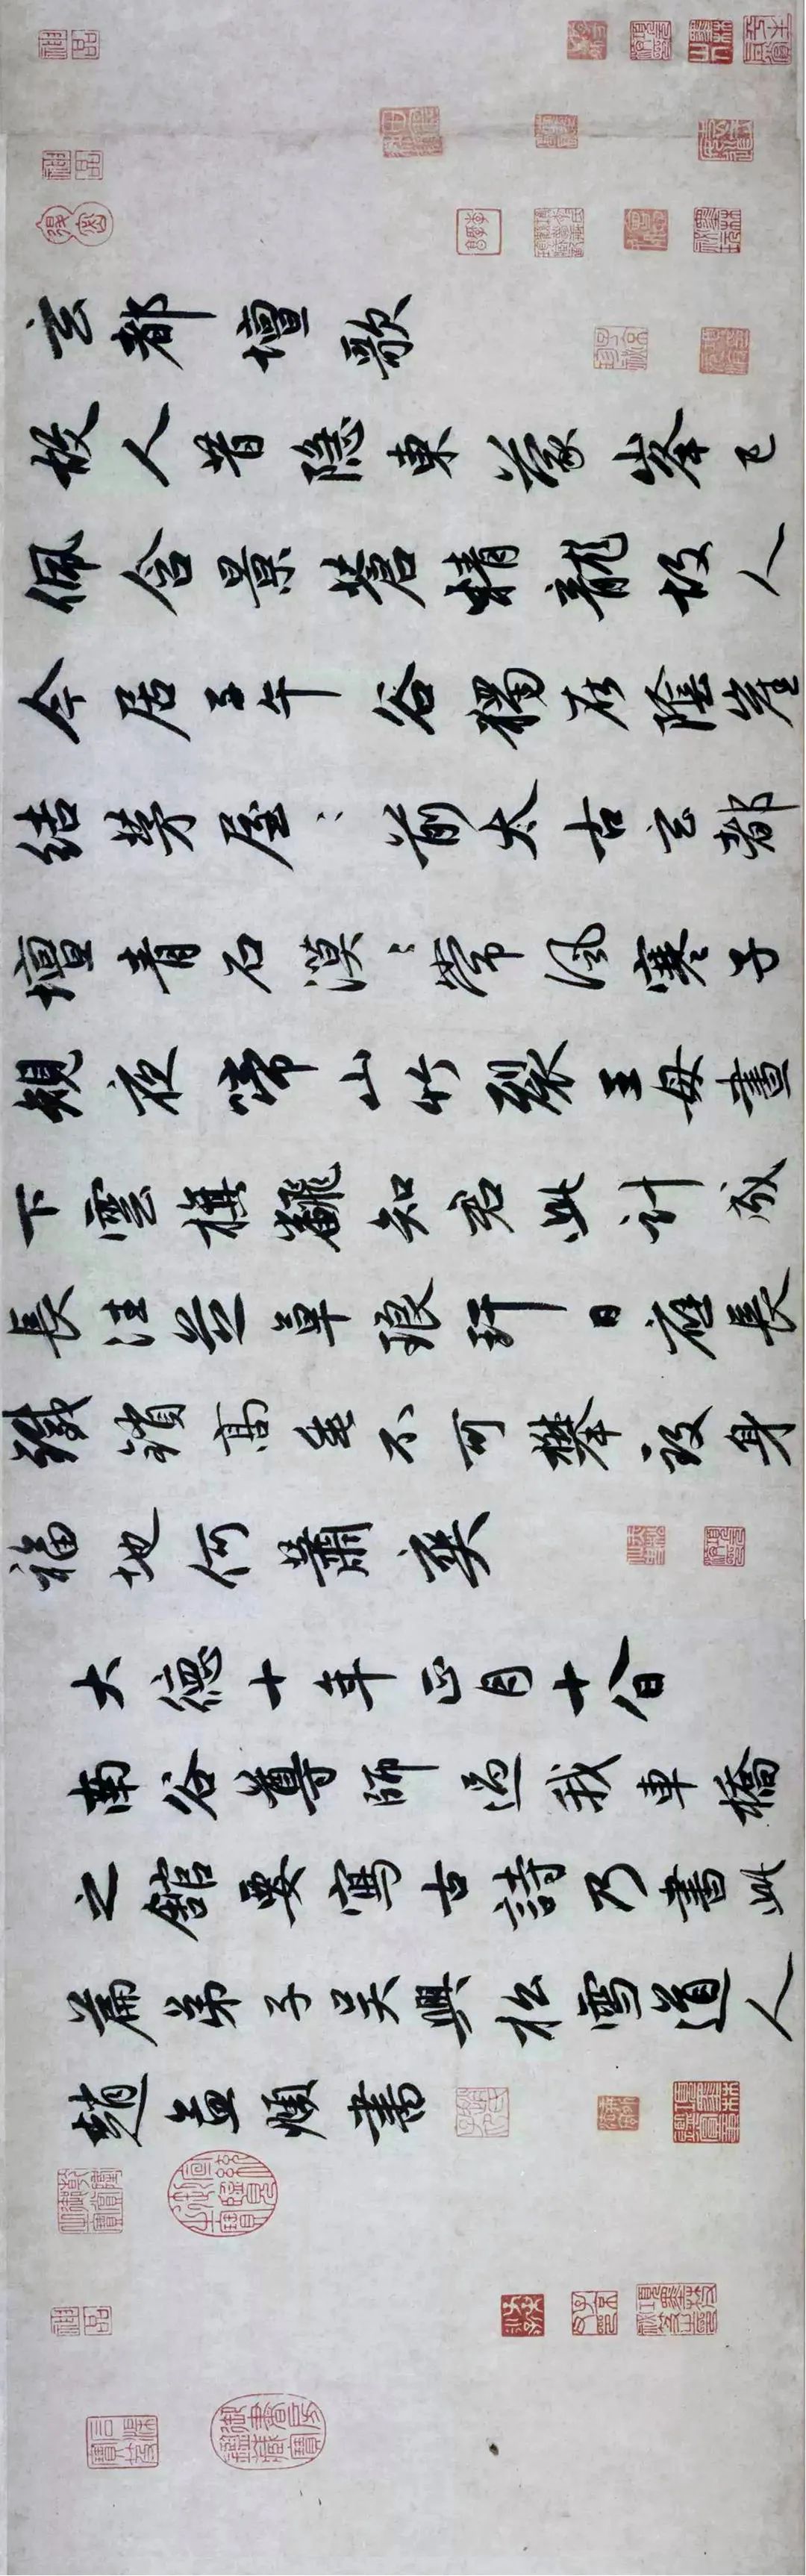 玄都壇歌
故人昔隱東蒙峯已
佩含景蒼精龍故人
今居子午谷獨在陰崖
結茅屋〻前太古玄都
壇青石漠〻常風寒子
規夜啼山竹裂王母晝
下雲旗翻知君此計成
長往芝草琅玕日應長
鐵鎖高垂不可攀致身
福地何蕭爽
大德十年正月十八日
南谷尊師過我車橋
之館要寫古詩乃書此
篇弟子吳興松雪道人
趙孟頫書